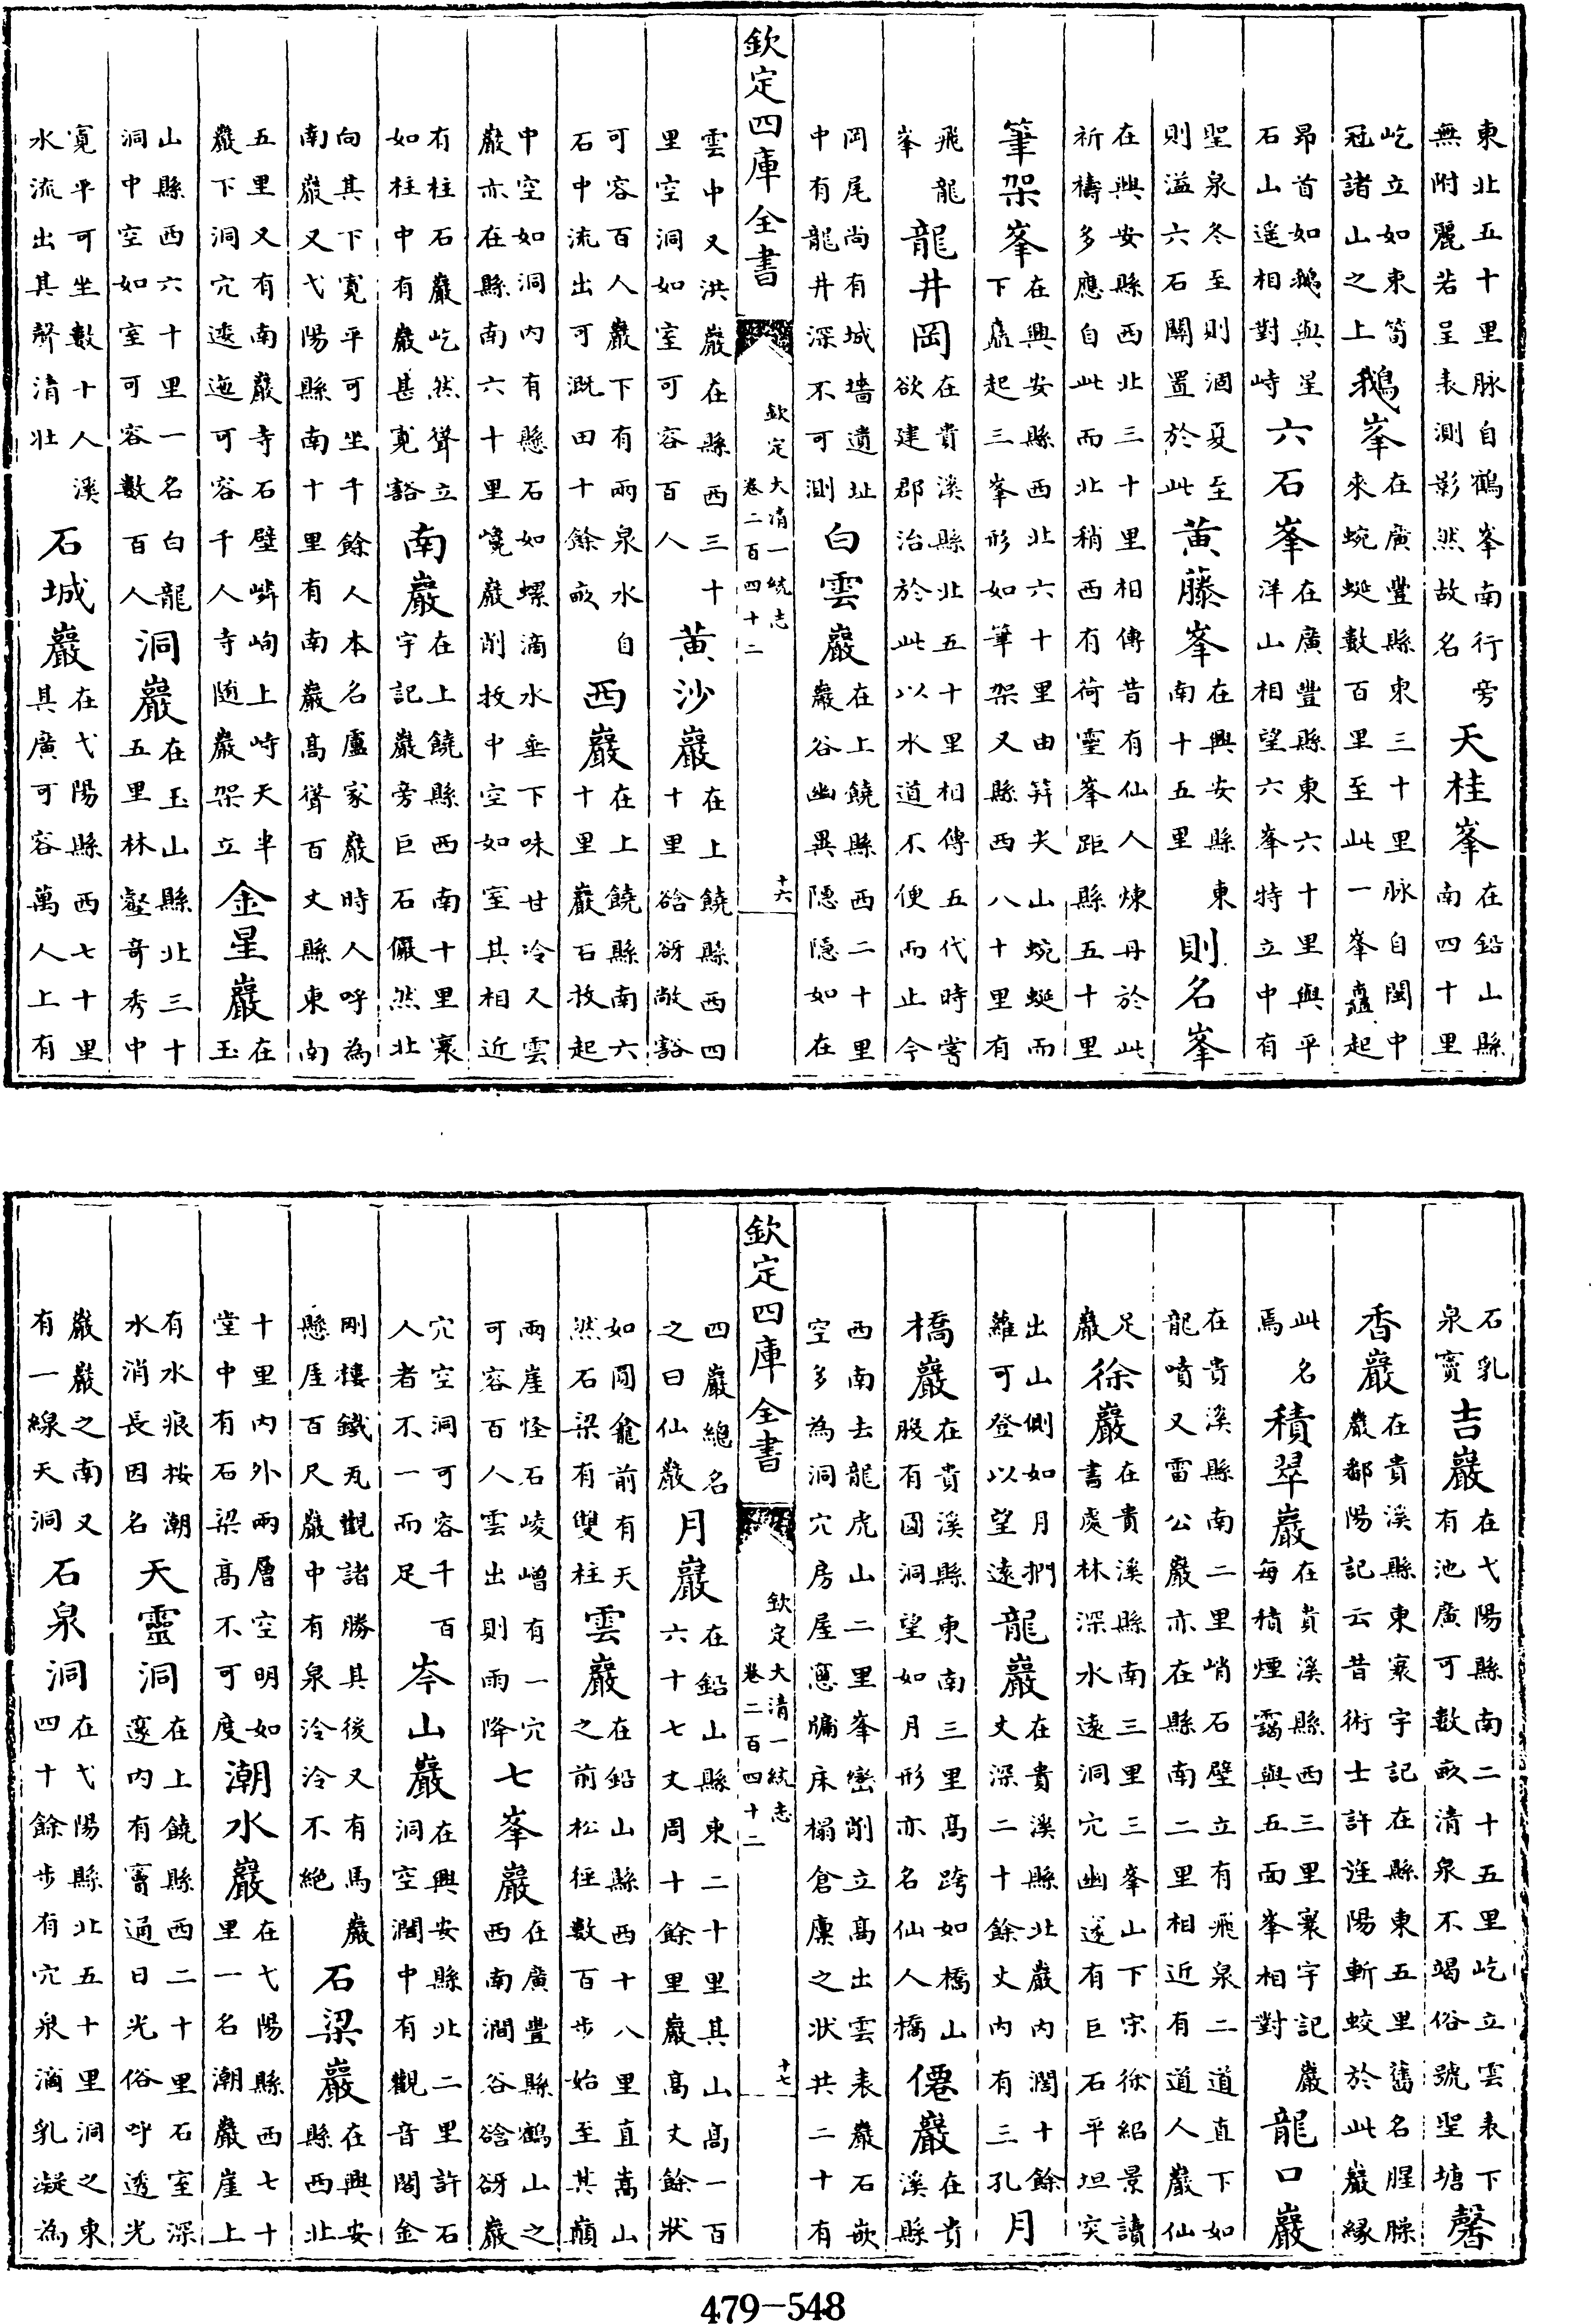 東北五十里脉自鶴峯南行旁無附麗若呈表測影然故名天桂峯在鉛山縣南四十里
屹立如東筍冠諸山之上鵝峯在廣豐縣東三十里脉自閩中來蜿蜒數百里至此一峯矗起
昂首如鵝與星石山遥相對峙六石峯在廣豐縣東六十里與平洋山相望六峯特立中有
聖泉冬至則涸夏至則溢六石關置於此黄藤峯在興安縣東南十五里則名峯
在興安縣西北三十里相傳昔有仙人煉丹於此祈禱多應自此而北稍西有荷靈峯距縣五十里
筆架峯在興安縣西北六十里由筓尖山蜿蜒而下矗起三峯形如筆架又縣西八十里有
飛龍峯龍井岡在貴溪縣北五十里相傳五代時嘗欲建郡治於此以水道不便而止今
岡尾尚有城墻遺址中有龍井深不可測白雲巖在上饒縣西二十里巖谷幽異隠隠如在
欽定四庫全書 欽定大清一統志 卷二百四十二 十六
雲中又洪巖在縣西三十里空洞如室可容百人黄沙巖在上饒縣西四十里谽谺敞豁
可容百人巖下有兩泉水自石中流出可溉田十餘畝西巖在上饒縣南六十里巖石㧞起
中空如洞内有懸石如螺滴水垂下味甘冷又雲巖亦在縣南六十里嶢巖削㧞中空如室其相近
有柱石巖屹然聳立如柱中有巖甚寛豁南巖在上饒縣西南十里寰宇記巖旁巨石儼然北
向其下寛平可坐千餘人本名盧家巖時人呼為南巖又弋陽縣南十里有南巖高聳百丈縣東南
五里又有南巖寺石壁嶙峋上峙天半巖下洞穴逶迤可容千人寺随巖架立金星巖在玉
山縣西六十里一名白龍洞中空如室可容數百人洞巖在玉山縣北三十五里林壑奇秀中
寛平可坐數十人溪水流出其聲清壯石城巖在弋陽縣西七十里其廣可容萬人上有
石乳泉竇吉巖在弋陽縣南二十五里屹立雲表下有池廣可數畝清泉不竭俗號聖塘馨
香巖在貴溪縣東寰宇記在縣東五里舊名腥臊巖鄱陽記云昔術士許旌陽斬蛟於此巖縁
此名焉積翠巖在貴溪縣西三里寰宇記巖每積煙靄與五面峯相對龍口巖
在貴溪縣南二里峭石壁立有飛泉二道直下如龍噴又雷公巖亦在縣南二里相近有道人巖仙
足巖徐巖在貴溪縣南三里三峯山下宋徐紹景讀書處林深水遠洞穴幽邃有巨石平坦突
出山側如月捫蘿可登以望遠龍巖在貴溪縣北巖内濶十餘丈深二十餘丈内有三孔月
橋巖在貴溪縣東南三里高跨如橋山股有圓洞望如月形亦名仙人橋僊巖在貴溪縣
西南去龍虎山二里峯巒削立高出雲表巖石嵌空多為洞穴房屋窻牖床榻倉廩之狀共二十有
欽定四庫全書 欽定大清一統志 卷二百四十二 十七
四巖總名之曰仙巖月巖在鉛山縣東二十里其山高一百六十七丈周十餘里巖高丈餘狀
如圓龕前有天然石梁有雙柱雲巖在鉛山縣西十八里直嵩山之前松徑數百步始至其巔
兩崖怪石崚嶒有一穴可容百人雲出則雨降七峯巖在廣豐縣鶴山之西南澗谷谽谺巖
穴空洞可容千百人者不一而足岑山巖在興安縣北二里許石洞空濶中有觀音閣金
剛樓鐵瓦觀諸勝其後又有馬巖懸厓百尺巖中有泉冷冷不絶石梁巖在興安縣西北
十里内外兩層空明如堂中有石梁高不可度潮水巖在弋陽縣西七十里一名潮巖崖上
有水痕桉潮水消長因名天靈洞在上饒縣西二十里石室深邃内有竇通日光俗呼透光
巖巖之南又有一線天洞石泉洞在弋陽縣北五十里洞之東四十餘步有穴泉滴乳凝為
479—548